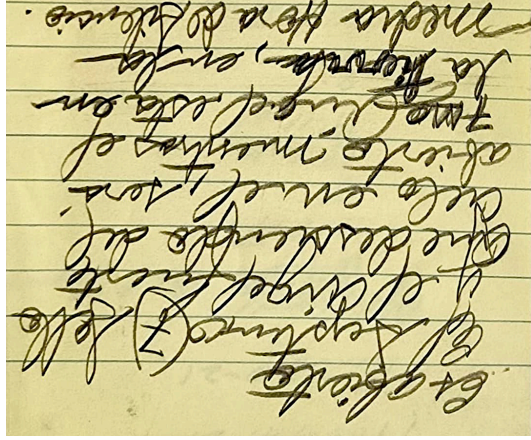 Es abierto
El septimo (7) sello
y el angel fuerte
que desciende del
cielo en el, será
abierto mientras el
7mo Angel esta en
la tierra, en la
media Hora de silencio.